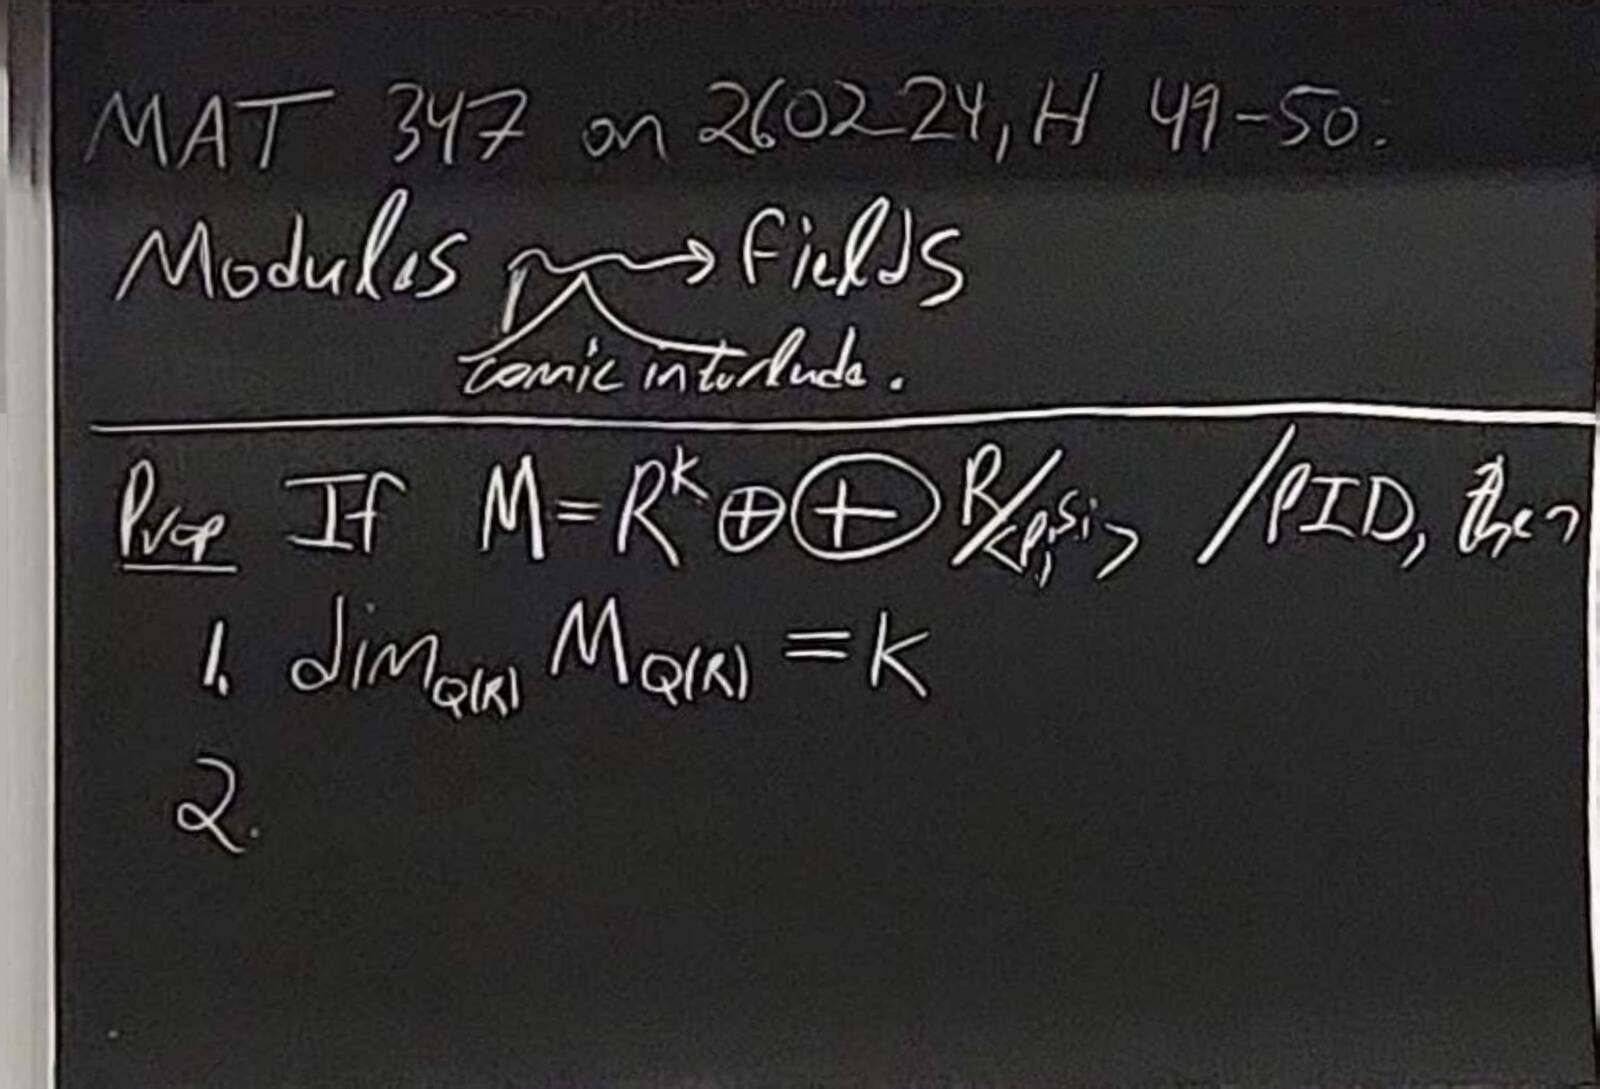 MAT 347 on 260224, H 49-50:
Modules ⟿ Fields
comic interlude.
Prop If M=R^k⊕⊕R/<p_i^{s_i}> /PID, then
1. dim_{Q(R)} M_{Q(R)} = k
2.